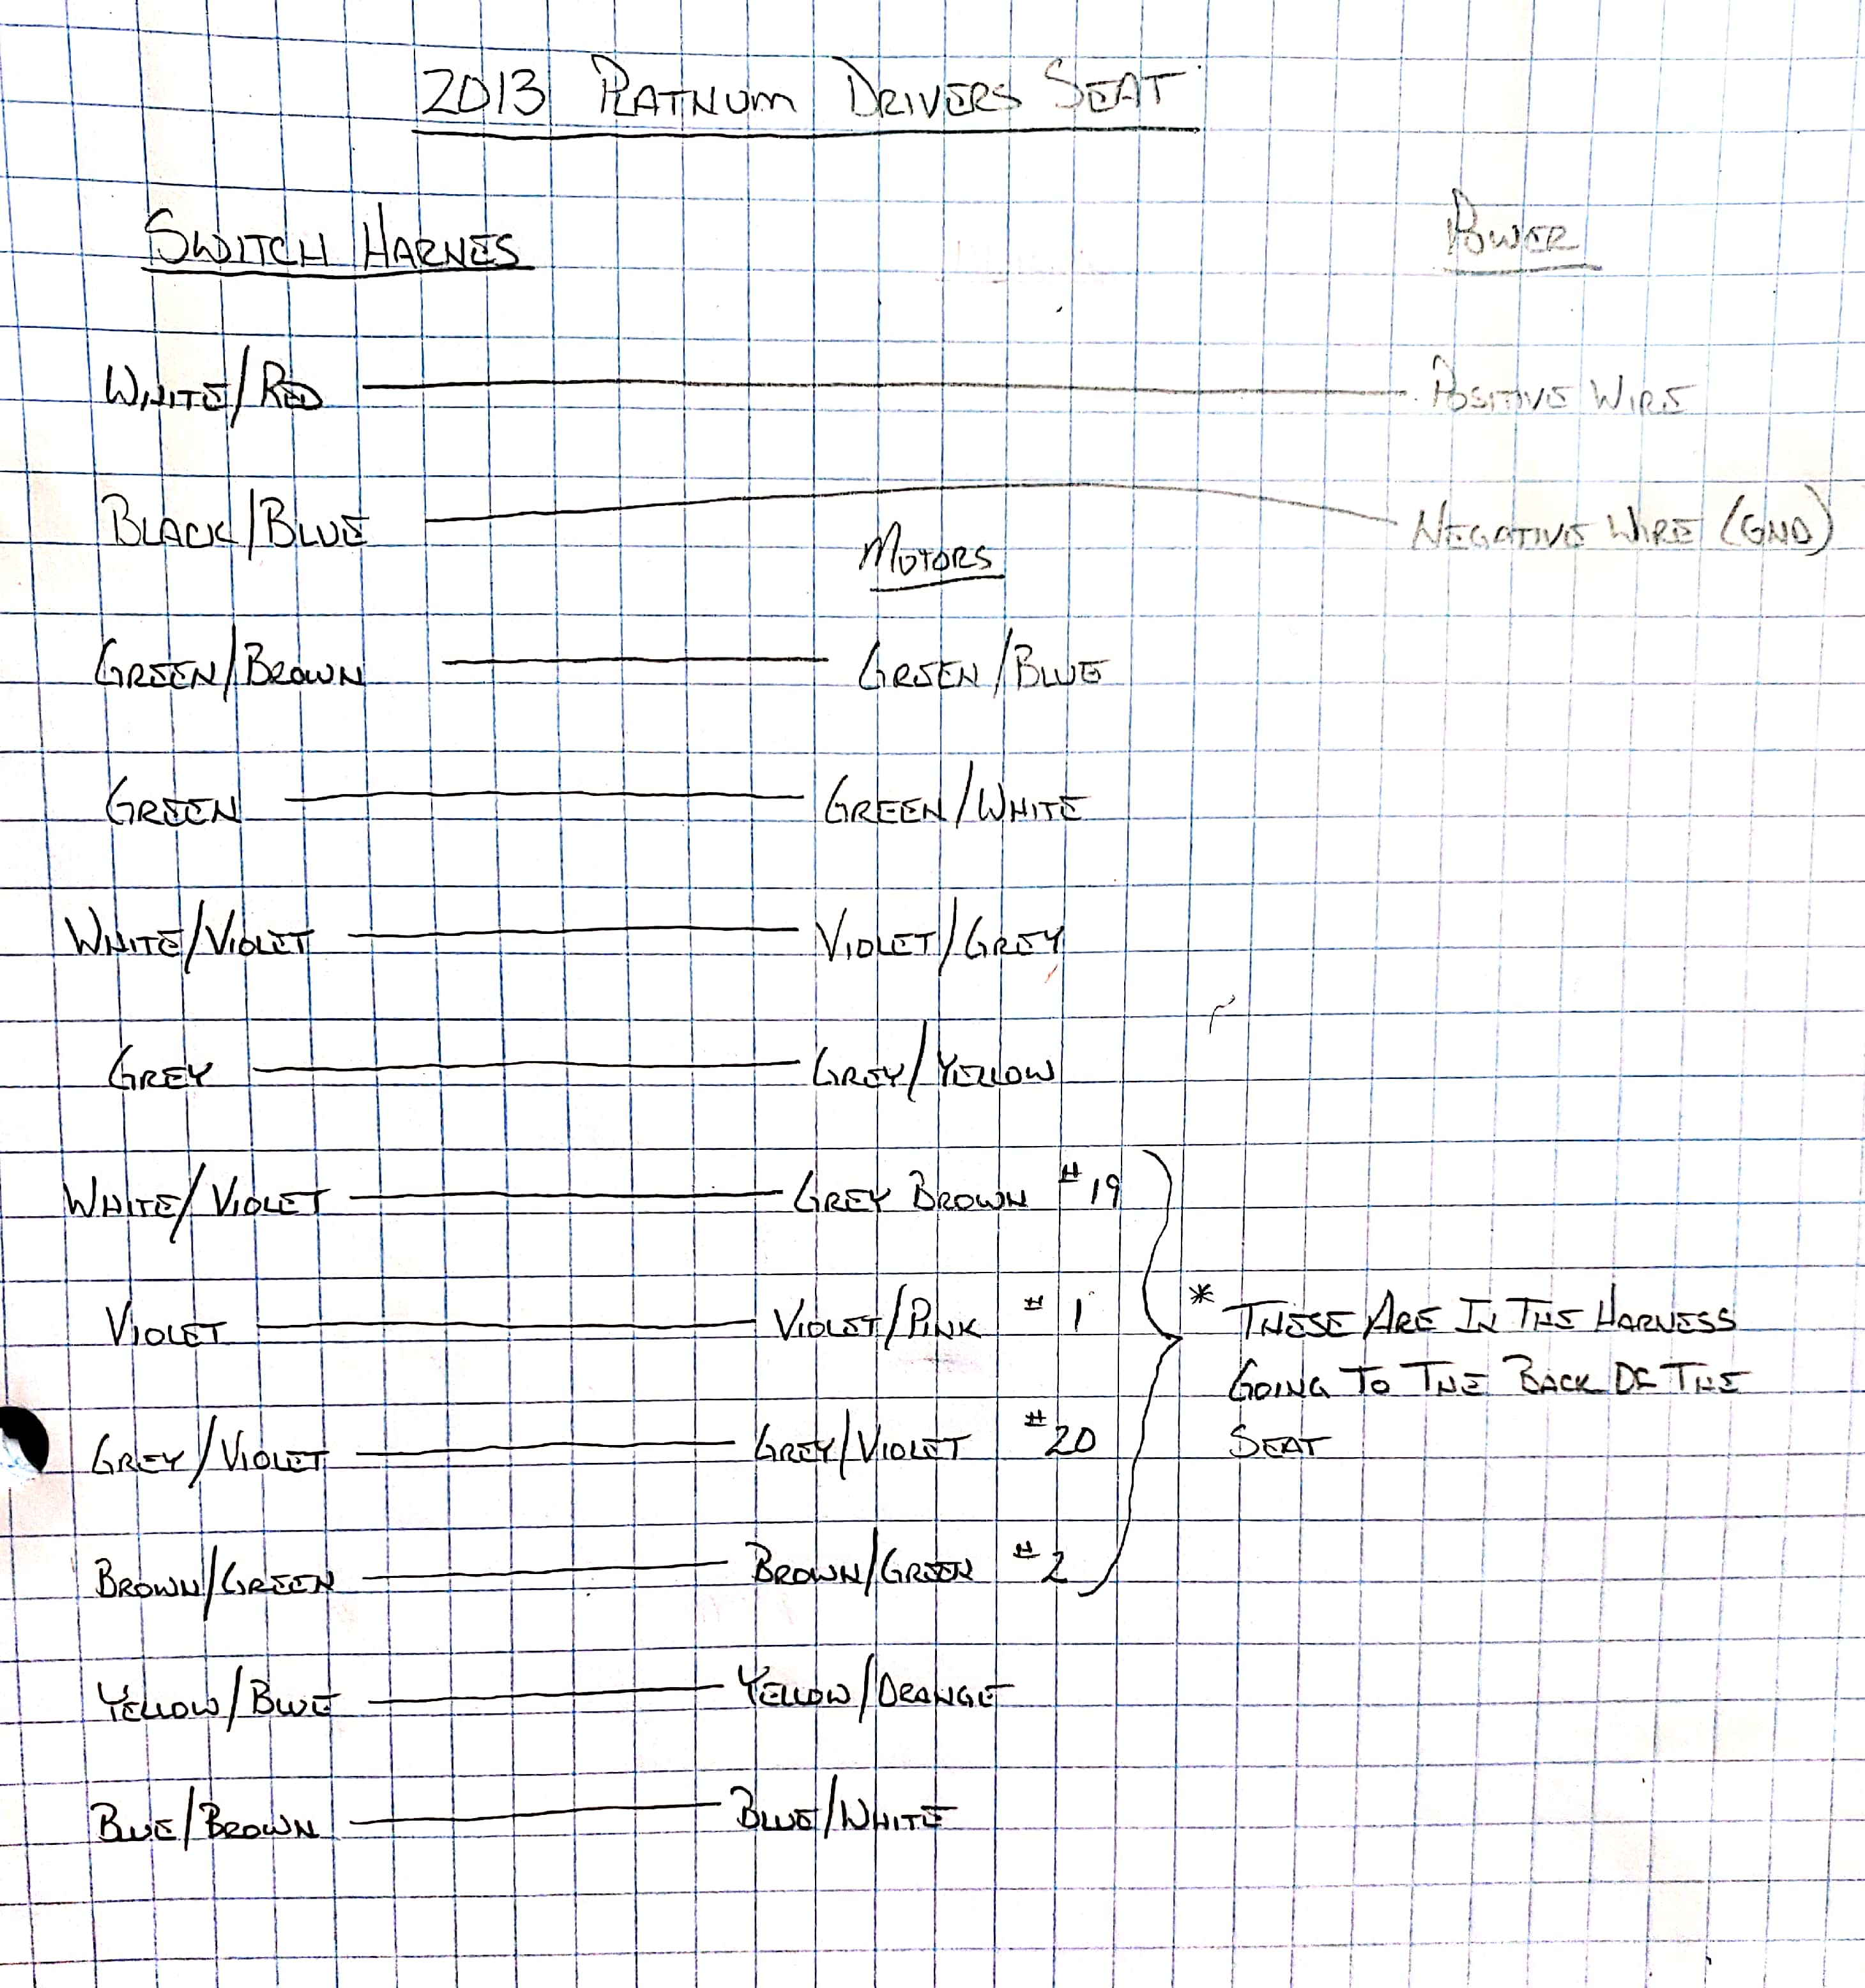 2013 PLATNUM DRIVERS SEAT
SWITCH HARNES POWER
WHITE/RED POSITIVE WIRE
BLACK/BLUE NEGATIVE WIRE (GND)
MOTORS
GREEN/BROWN GREEN/BLUE
GREEN GREEN/WHITE
WHITE/VIOLET VIOLET/GREY
GREY GREY/YELLOW
WHITE/VIOLET GREY BROWN #19
VIOLET VIOLET/PINK # 1
* THESE ARE IN THE HARNESS
GOING TO THE BACK OF THE
SEAT
GREY/VIOLET GREY/VIOLET #20
BROWN/GREEN BROWN/GREEN #2
YELLOW/BLUE YELLOW/ORANGE
BLUE/BROWN BLUE/WHITE